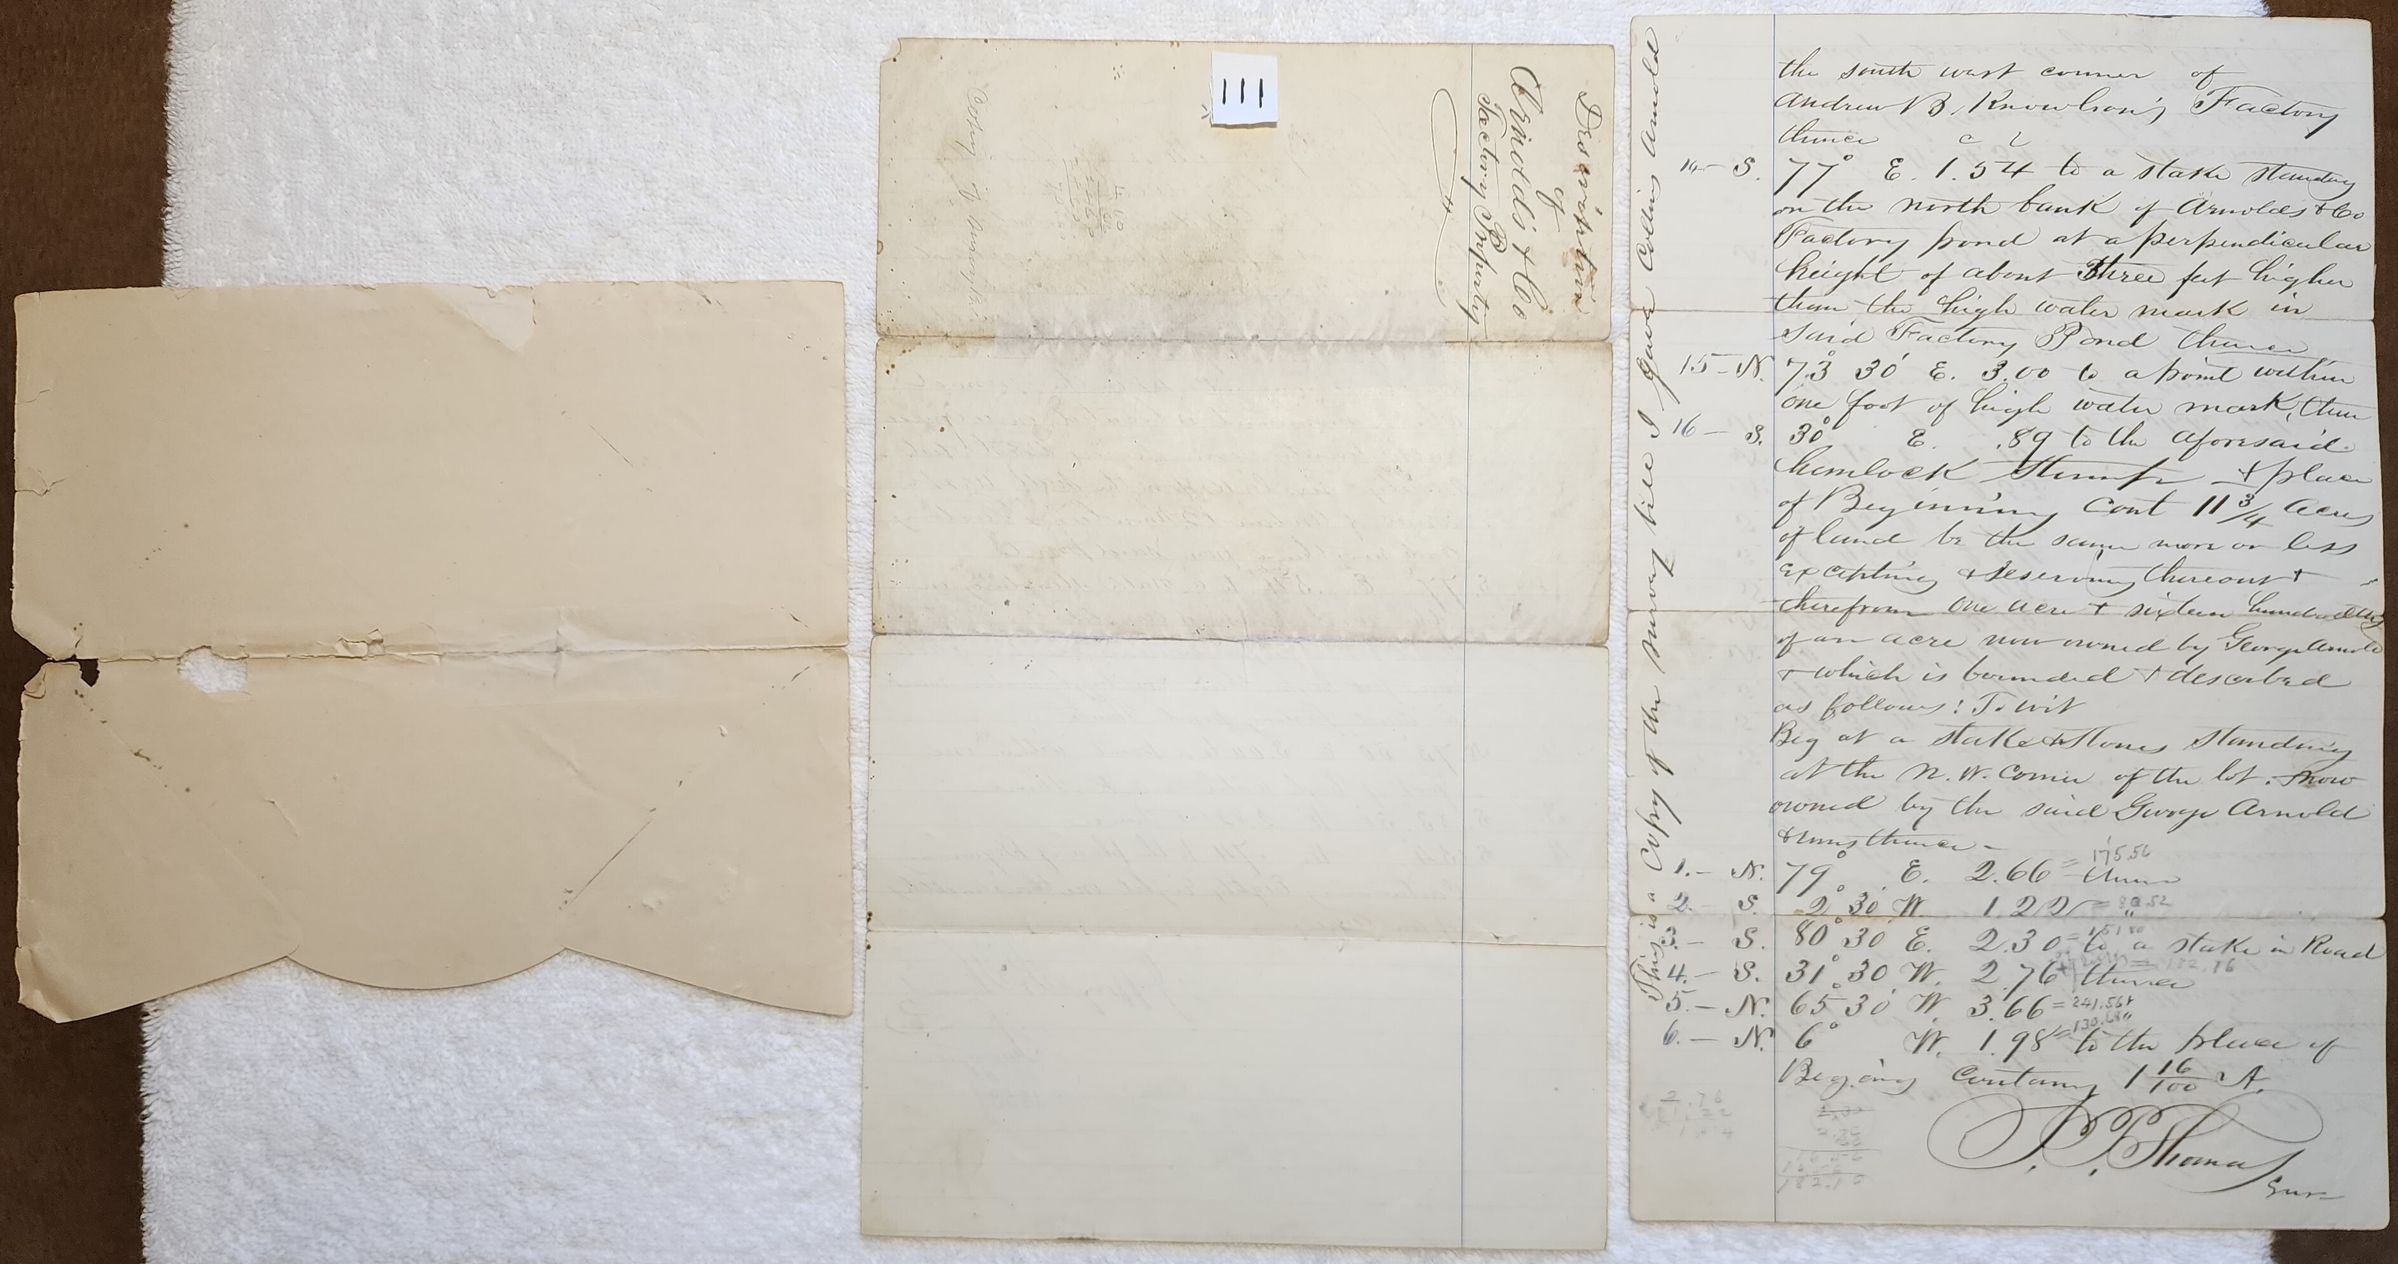 111
Description
of
Arnolds & Co
Factory Property
Copy of
4 60
This is a Copy of the survey bill I gave Collins Arnold
the south west corner of
Andrew B. Knowlson's Factory
thence c l
14 - S. 77° E. 1.54 to a stake standing
on the north bank of Arnolds & Co
Factory pond at a perpendicular
height of about three feet higher
than the high water mark in
said Factory Pond thence
15 - N. 73° 30' E. 3.00 to a point within
one foot of high water mark, thence
16 - S. 30° E. .89 to the aforesaid
hemlock stump & place
of Beginning Cont 11 3/4 acres
of land be the same more or less
excepting & reserving thereout &
therefrom one acre & sixteen hundredths
of an acre now owned by George Arnold
& which is bounded & described
as follows: To wit
Beg at a stake & stones standing
at the N. W. corner of the lot now
owned by the said George Arnold
& runs thence -
1. - N. 79° E. 2.66 = 175.56 thence
2. - S. 2° 30' W. 1.22 = 80.52 "
3. - S. 80° 30' E. 2.30 = 151.80 to a stake in Road
4. - S. 31° 30' W. 2.76 = 182.16 thence
5. - N. 65° 30' W. 3.66 = 241.56 "
6. - N. 6° W. 1.98 = 130.68 to the place of
Begining Containg 1 16/100 A.
2.76
182.16
Thomas
Sur